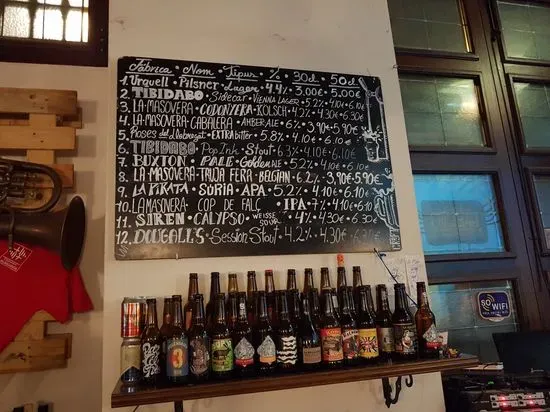 Fàbrica · Nom · Tipus · % · 30cl · 50cl
1. Urquell · Pilsner · Lager · 4.4% · 3,00€ · 5,00€
2. TIBIDABO · Sidecar · VIENNA LAGER · 5.2% · 4.10€ · 6.10€
3. LA MASOVERA · CODONYERA · KOLSCH · 4.2% · 4.10€ · 6.10€
4. LA MASOVERA · CABALERA · AMBER ALE · 6% · 3,90€ · 5.90€
5. Roses del Llobregat · EXTRA bitter · 5.8% · 4.10€ · 6.10€
6. TIBIDABO · Pop Ink · Stout · 6.3% · 4.10€ · 6.10€
7. BUXTON · PALE · Golden ALE · 5.2% · 4.10€ · 6.10€
8. LA MASOVERA · TRUJA FERA · BELGIAN · 6.2% · 3,90€ · 5.90€
9. LA PIRATA · SÚRIA · APA · 5.2% · 4.10€ · 6.10€
10. LA MASOVERA · COP DE FALÇ · IPA · 7% · 4.10€ · 6.10€
11. SIREN · CALYPSO · WEISSE SOUR · 4% · 4.30€ · 6.30€
12. DOUGALL'S · Session Stout · 4.2% · 4.30€ · 6.30€
WiFi